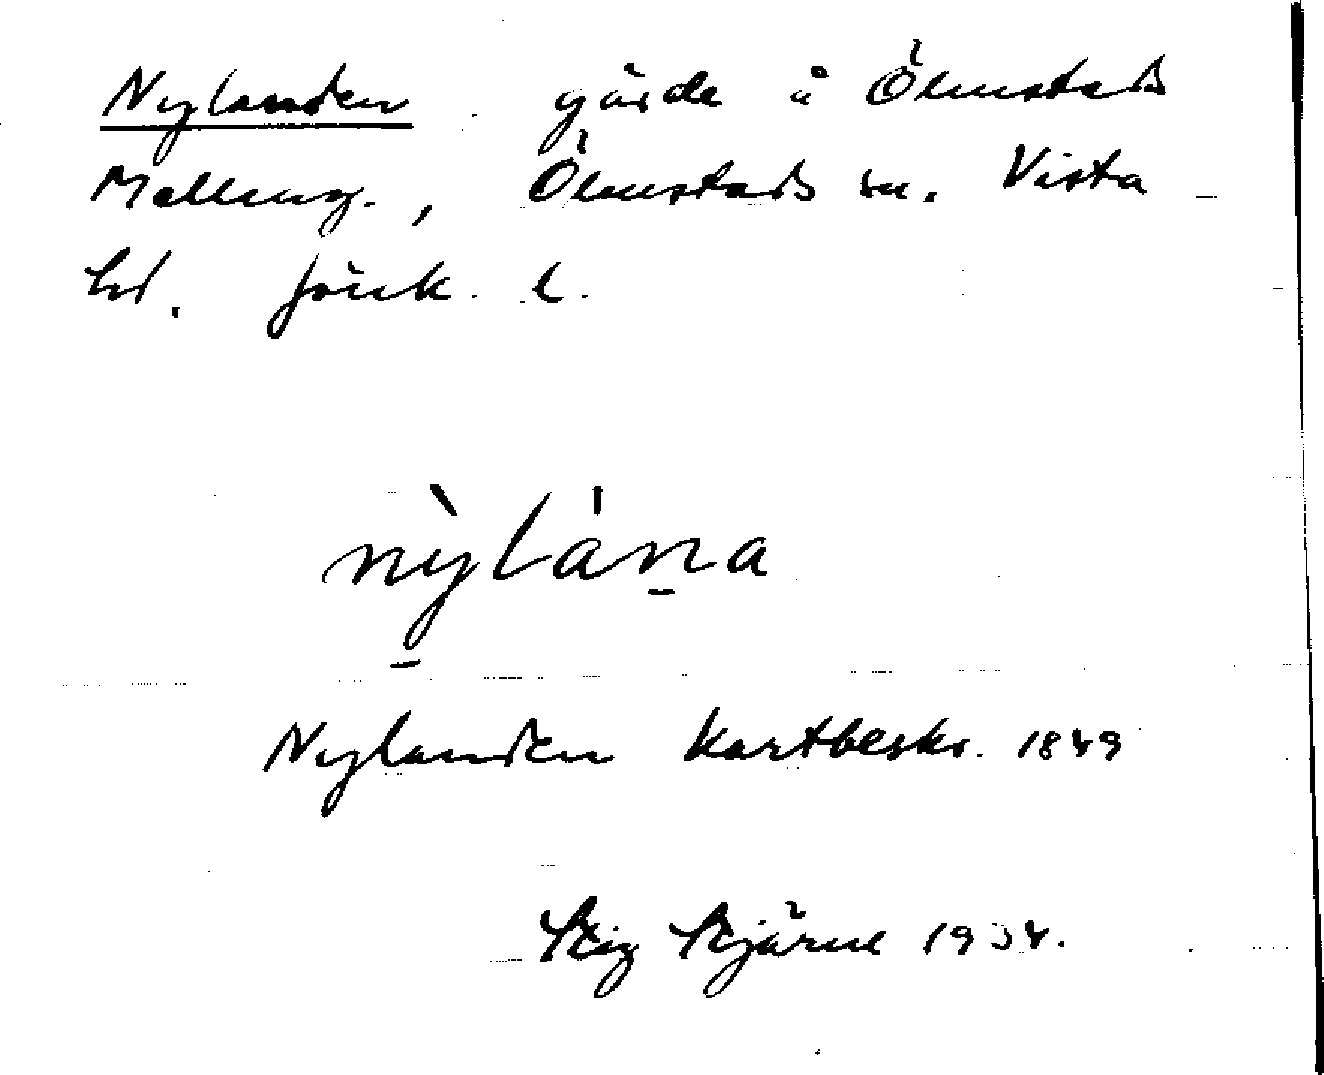 Nylanden gärde å Ölmstads
Melleng., Ölmstads sn. Vista
hd. Jönk. l.
nỳlána
Nylanden Kartbeskr. 1849
Stig Stjärne 1934.